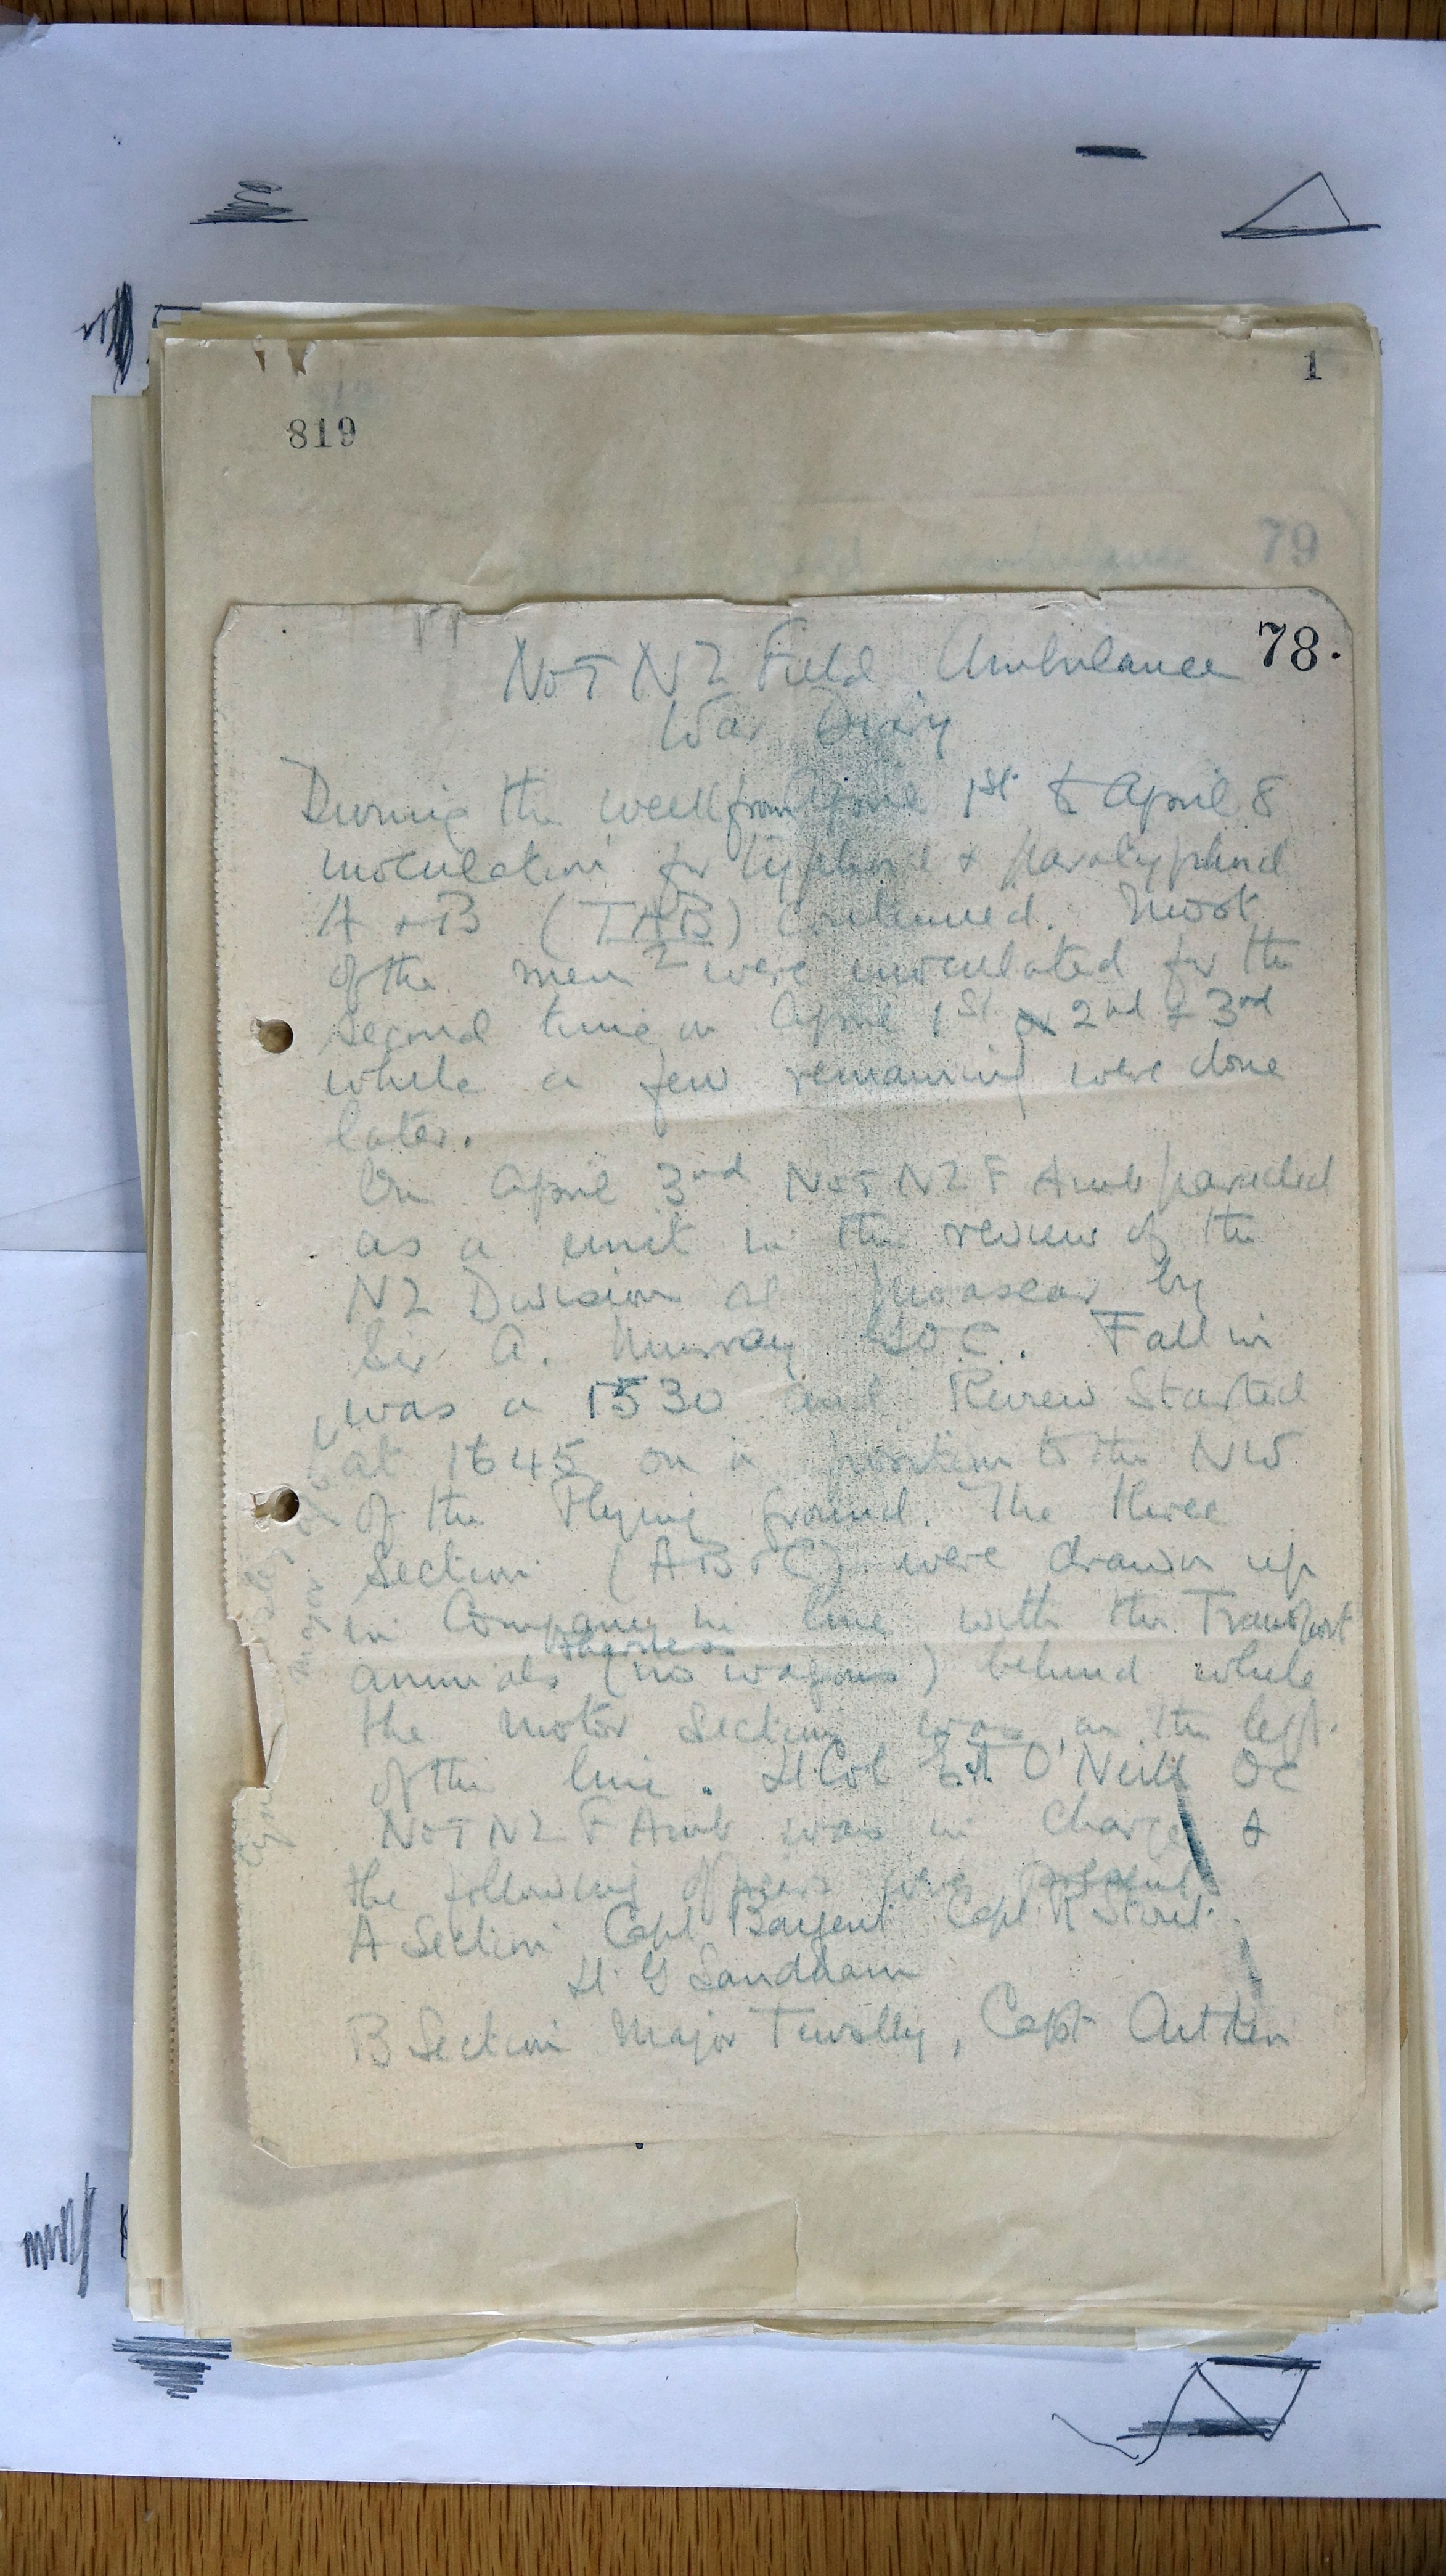 1
819
79
78.
No 1 NZ Field Ambulance
War Diary
During the week from April 1st to April 8
inoculation for typhoid & paratyphoid
A & B (TAB) continued. Most
of the men were inoculated for the
second time on April 1st 2nd & 3rd
while a few remaining were done
later.
On April 3rd No 1 NZ F Amb paraded
as a unit in the review of the
NZ Division at Moascar by
Sir A. Murray GOC. Fall in
was a 1530 and Review Started
at 1645 on a position to the NW
of the Flying ground. The three
Section (A B & C) were drawn up
in Company in line with the Transport
animals (no wagons) behind while
the motor Section was on the left
of the line. Lt Col E.J. O'Neill OC
No 1 NZ F Amb was in charge &
the following officers were present
A Section Capt Bargent Capt R Stout
Lt G Sandham
B Section Major Twolly, Capt Aitken